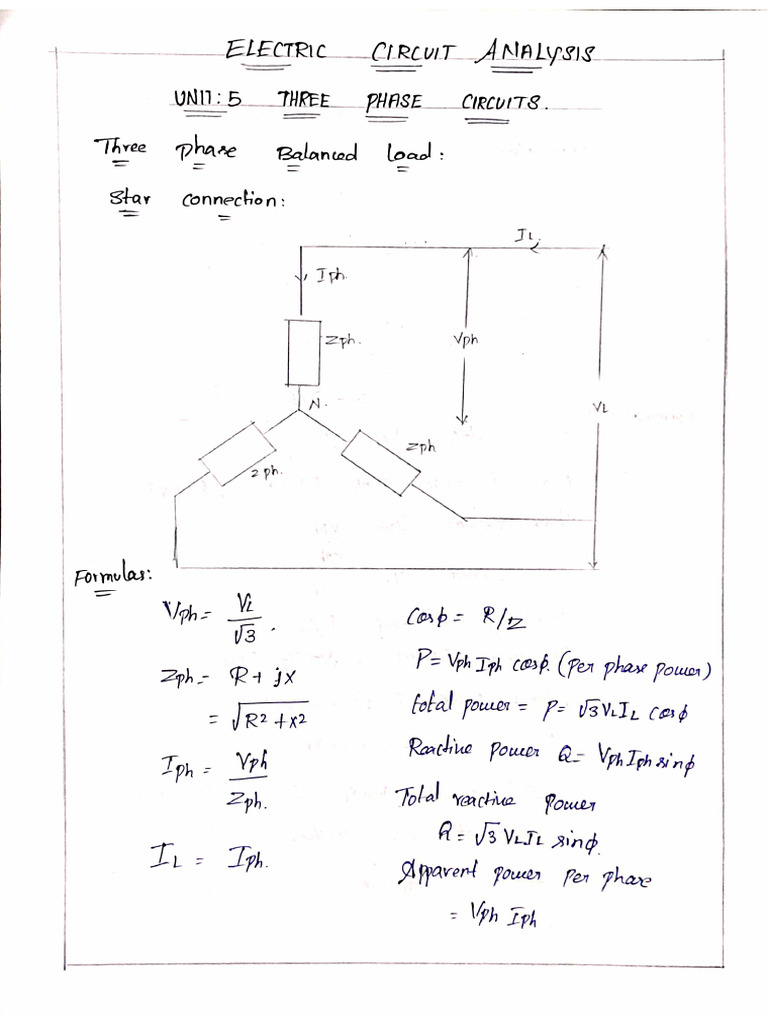 ELECTRIC CIRCUIT ANALYSIS
UNIT: 5 THREE PHASE CIRCUITS.
Three phase Balanced load:
Star connection:
IL
Iph
Zph.
Vph
N.
VL
Zph
Zph.
Formulas:
Vph = VL/√3.
Zph = R + jX
= √R² + X²
Iph = Vph/Zph.
IL = Iph.
Cosϕ = R/Z
P = Vph Iph cosϕ. (per phase power)
total power = P = √3 VL IL cosϕ
Reactive power Q = Vph Iph sinϕ
Total reactive power
Q = √3 VL IL sinϕ.
Apparent power per phase
= Vph Iph